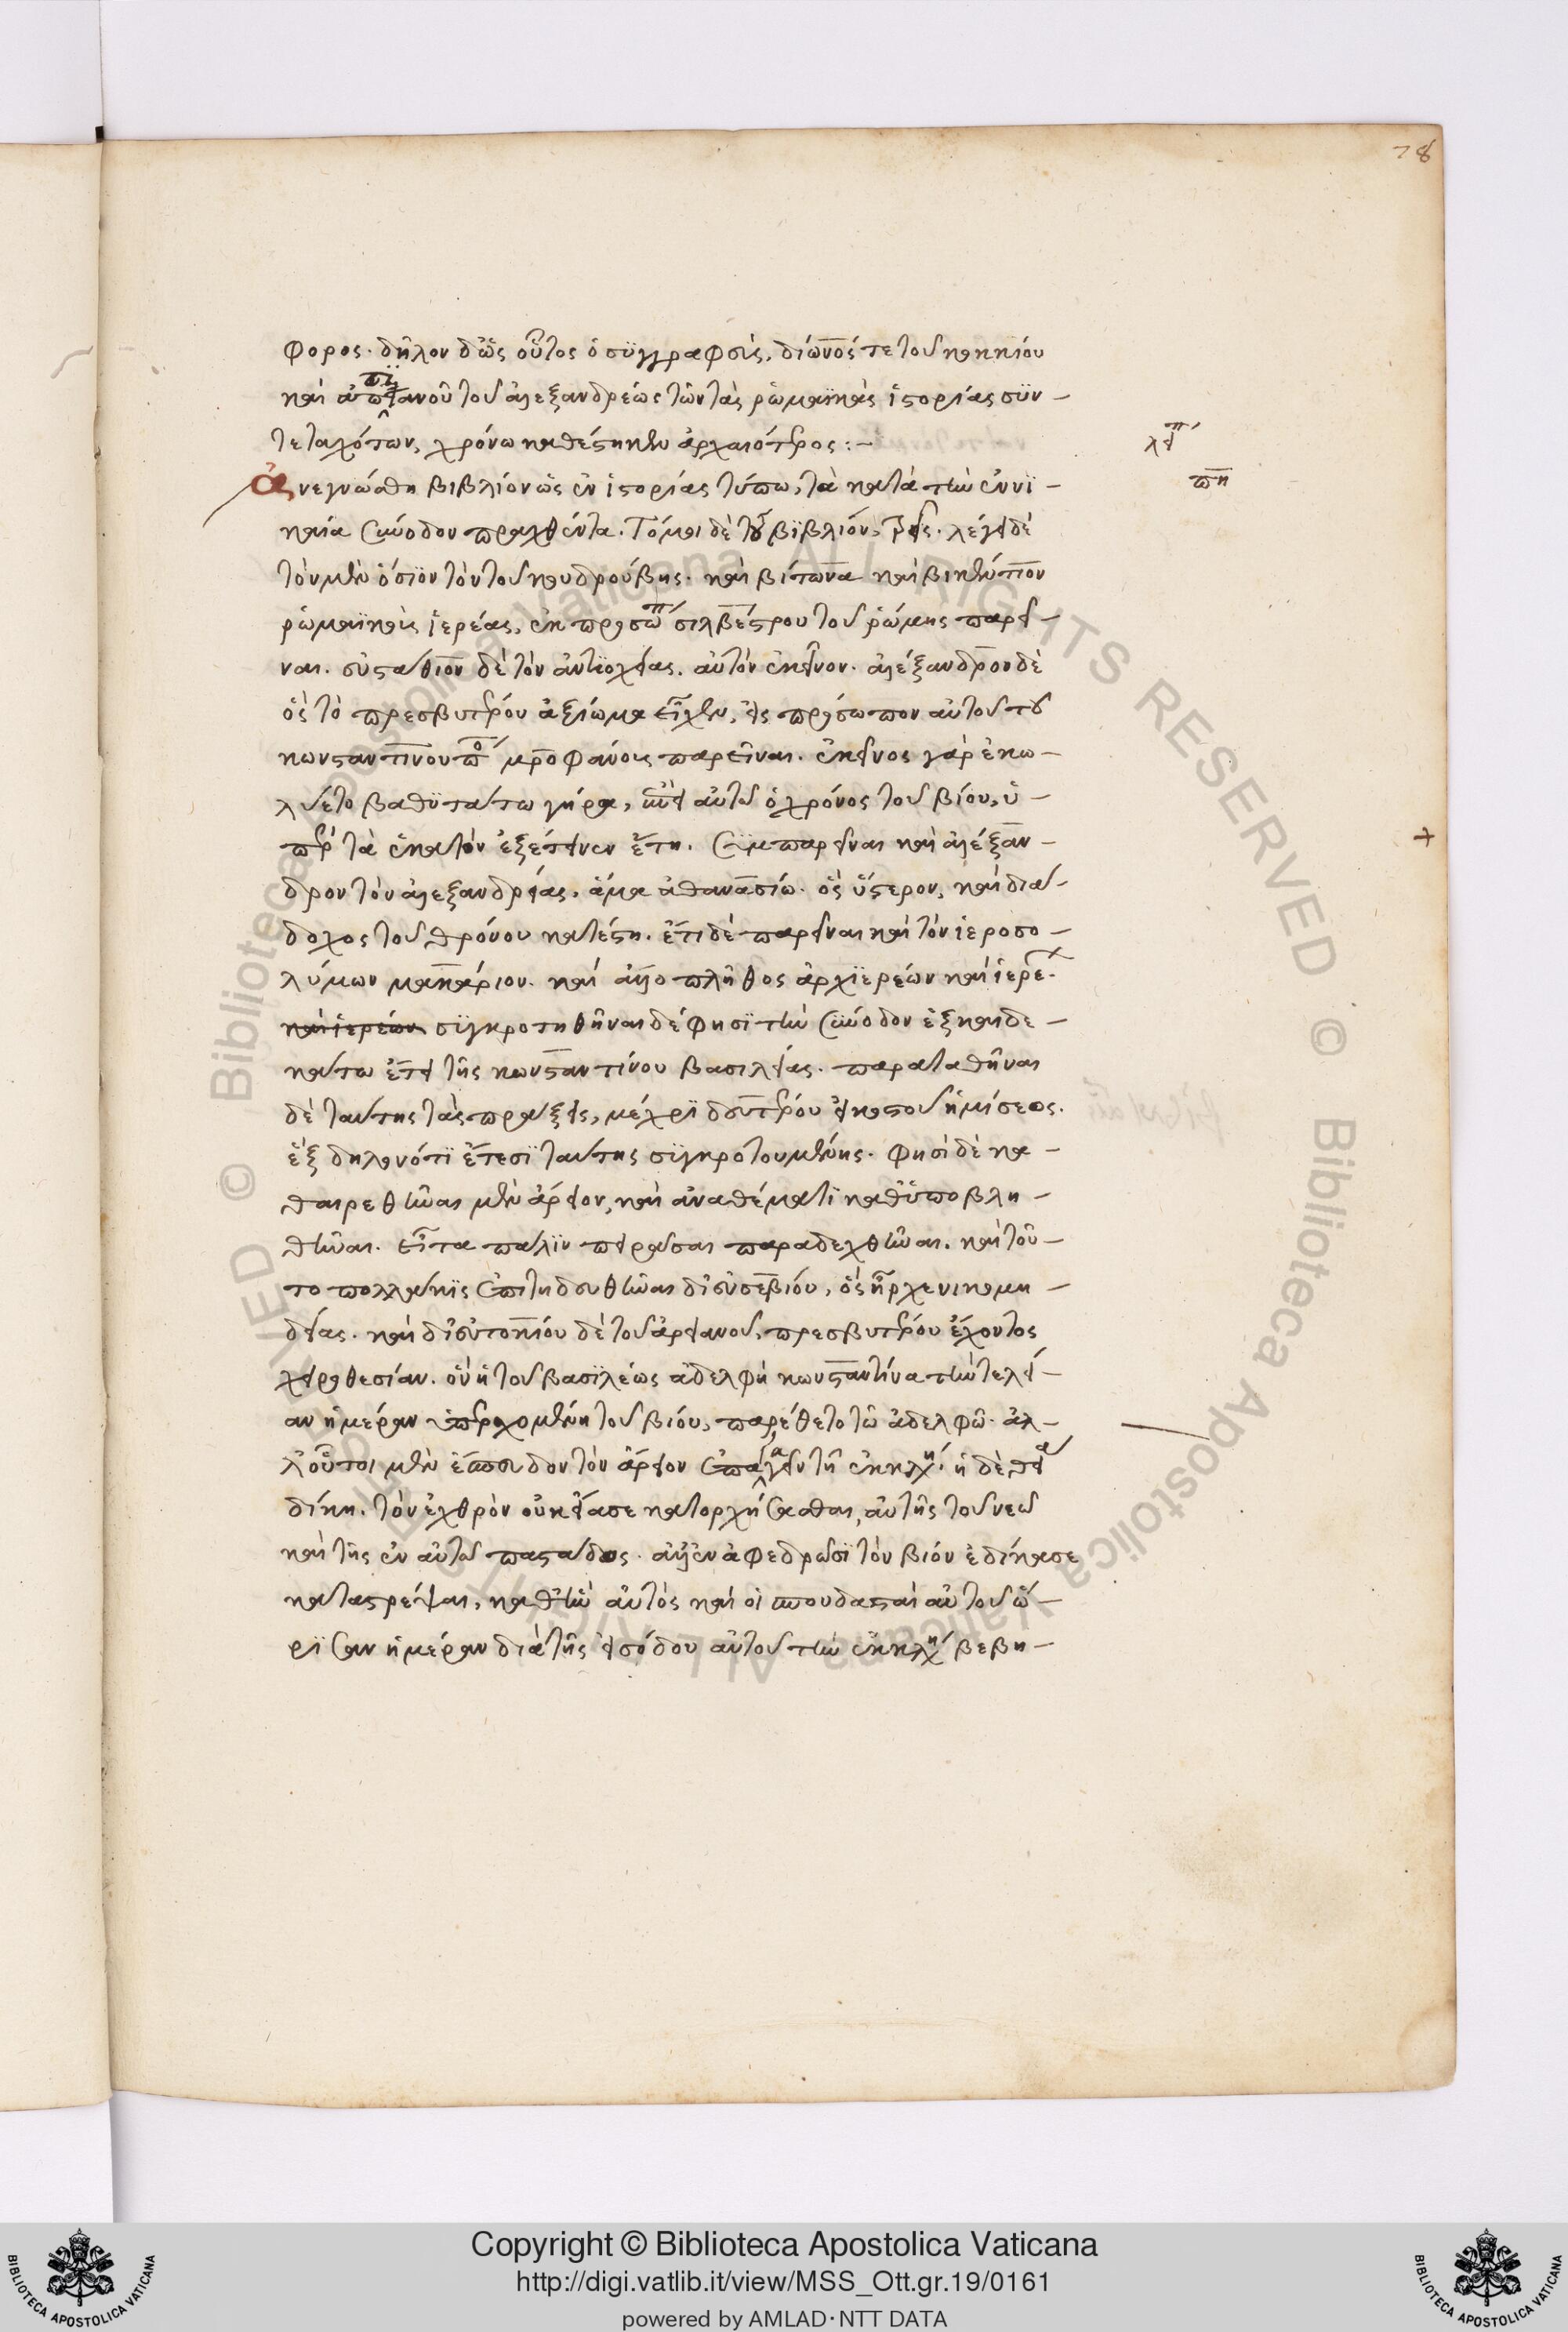 78
φορος. δῆλον δ' ὡς οὗτος ὁ συγγραφεὺς, δίωνός τε τοῦ κοκκίου
καὶ ἀππιανοῦ τοῦ ἀλεξανδρέως τῶν τὰς ῥωμαϊκὰς ἱστορίας συν-
τεταχότων, χρόνω καθέστηκεν ἀρχαιότερος:-
λει π
πη
Ἀνεγνώσθη βιβλίον ὡς ἐν ἱστορίας τύπω, τὰ κατὰ τὴν ἐν νι-
καία σύνοδον πραχθέντα. Τόμοι δὲ τοῦ βιβλίου, τρεῖς. λέγει δὲ
τὸν μὲν ὅσιον τὸν τοῦ κουδρούβης. καὶ βίτωνα καὶ βικέντιον
ῥωμαϊκοὺς ἱερέας, ἐκ προσώπ σιλβέστρου τοῦ ῥώμης παρεῖ-
ναι. εὐστάθιον δὲ τὸν ἀντιοχείας. αὐτὸν ἐκεῖνον. ἀλέξανδρον δὲ
ὃς τὸ πρεσβυτέρου ἀξίωμα εἶχεν, εἰς πρόσωπον αὐτοῦ τοῦ
κωνσταντίνουπο μητροφάνους παρεῖναι. ἐκεῖνος γὰρ ἐκω-
λύετο βαθυτάτω γήρα, ἦν αὐτῶ ὁ χρόνος τοῦ βίου, ὑ-
πὲρ τὰ ἑκατὸν ἐξέτεινεν ἔτη. συμπαρεῖναι καὶ ἀλέξαν-
δρον τὸν ἀλεξανδρείας, ἅμα ἀθανασίω. ὃς ὕστερον, καὶ διά-
δοχος τοῦ θρόνου κατέστη. ἔτι δὲ παρεῖναι καὶ τὸν ἱεροσο-
λύμων μακάριον. καὶ ἄλλο πλῆθος ἀρχιερέων καὶ ἱερέ.
καὶ ἱερέων συγκροτηθῆναι δέ φησι τὴν σύνοδον ἑξκαιδε-
κάτω ἔτει τῆς κωνσταντίνου βασιλείας. παραταθῆναι
δὲ ταύτης τὰς πράξεις, μέχρι δευτέρου εἰκοστοῦ ἡμίσεος.
ἓξ δηλονότι ἔτεσι ταύτης συγκροτουμένης. φησὶ δὲ κα-
θαιρεθῆναι μὲν ἄρειον, καὶ ἀναθέματι καθυποβλη-
θῆναι. εἶτα πάλιν πειρᾶσαι παραδεχθῆναι. καὶ τοῦ-
το πολλάκις ἐπιτηδευθῆναι δι' εὐσεβίου, ὃς ἦρχε νικομη-
δείας. καὶ δι' εὐτοκίου δὲ τοῦ ἀρειανοῦ, πρεσβυτέρου ἔχοντος
χειροθεσίαν. ὃν ἡ τοῦ βασιλέως ἀδελφὴ κωνσταντίνα τὴν τελεί-
αν ἡμέραν ὑπερχομένη τοῦ βίου, παρέθετο τῶ ἀδελφῶ. ἀλ-
λ' οὗτοι μὲν ἔσπευδον τὸν ἄρειον ἐπαναγαγεῖν τῆ ἐκκλη. ἡ δὲ θεία
δίκη. τὸν ἐχθρὸν οὐκ εἴασε κατορχήσασθαι, αὐτῆς τοῦ νεὼ
καὶ τῆς ἐν αὐτῶ παστάδος. ἀλλ' ἐν ἀφεδρῶσι τὸν βίον ἐδίκασε
καταστρέψαι, καθ' ἣν αὐτὸς καὶ οἱ σπουδασταὶ αὐτοῦ ὥ-
ρισαν ἡμέραν διὰ τῆς εἰσόδου αὐτοῦ τὴν ἐκκλη βεβη-
Copyright © Biblioteca Apostolica Vaticana
http://digi.vatlib.it/view/MSS_Ott.gr.19/0161
powered by AMLAD·NTT DATA